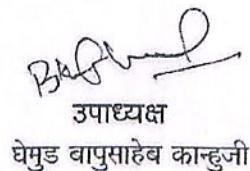 उपाध्यक्ष
घेमुड बापुसाहेब कान्हुजी